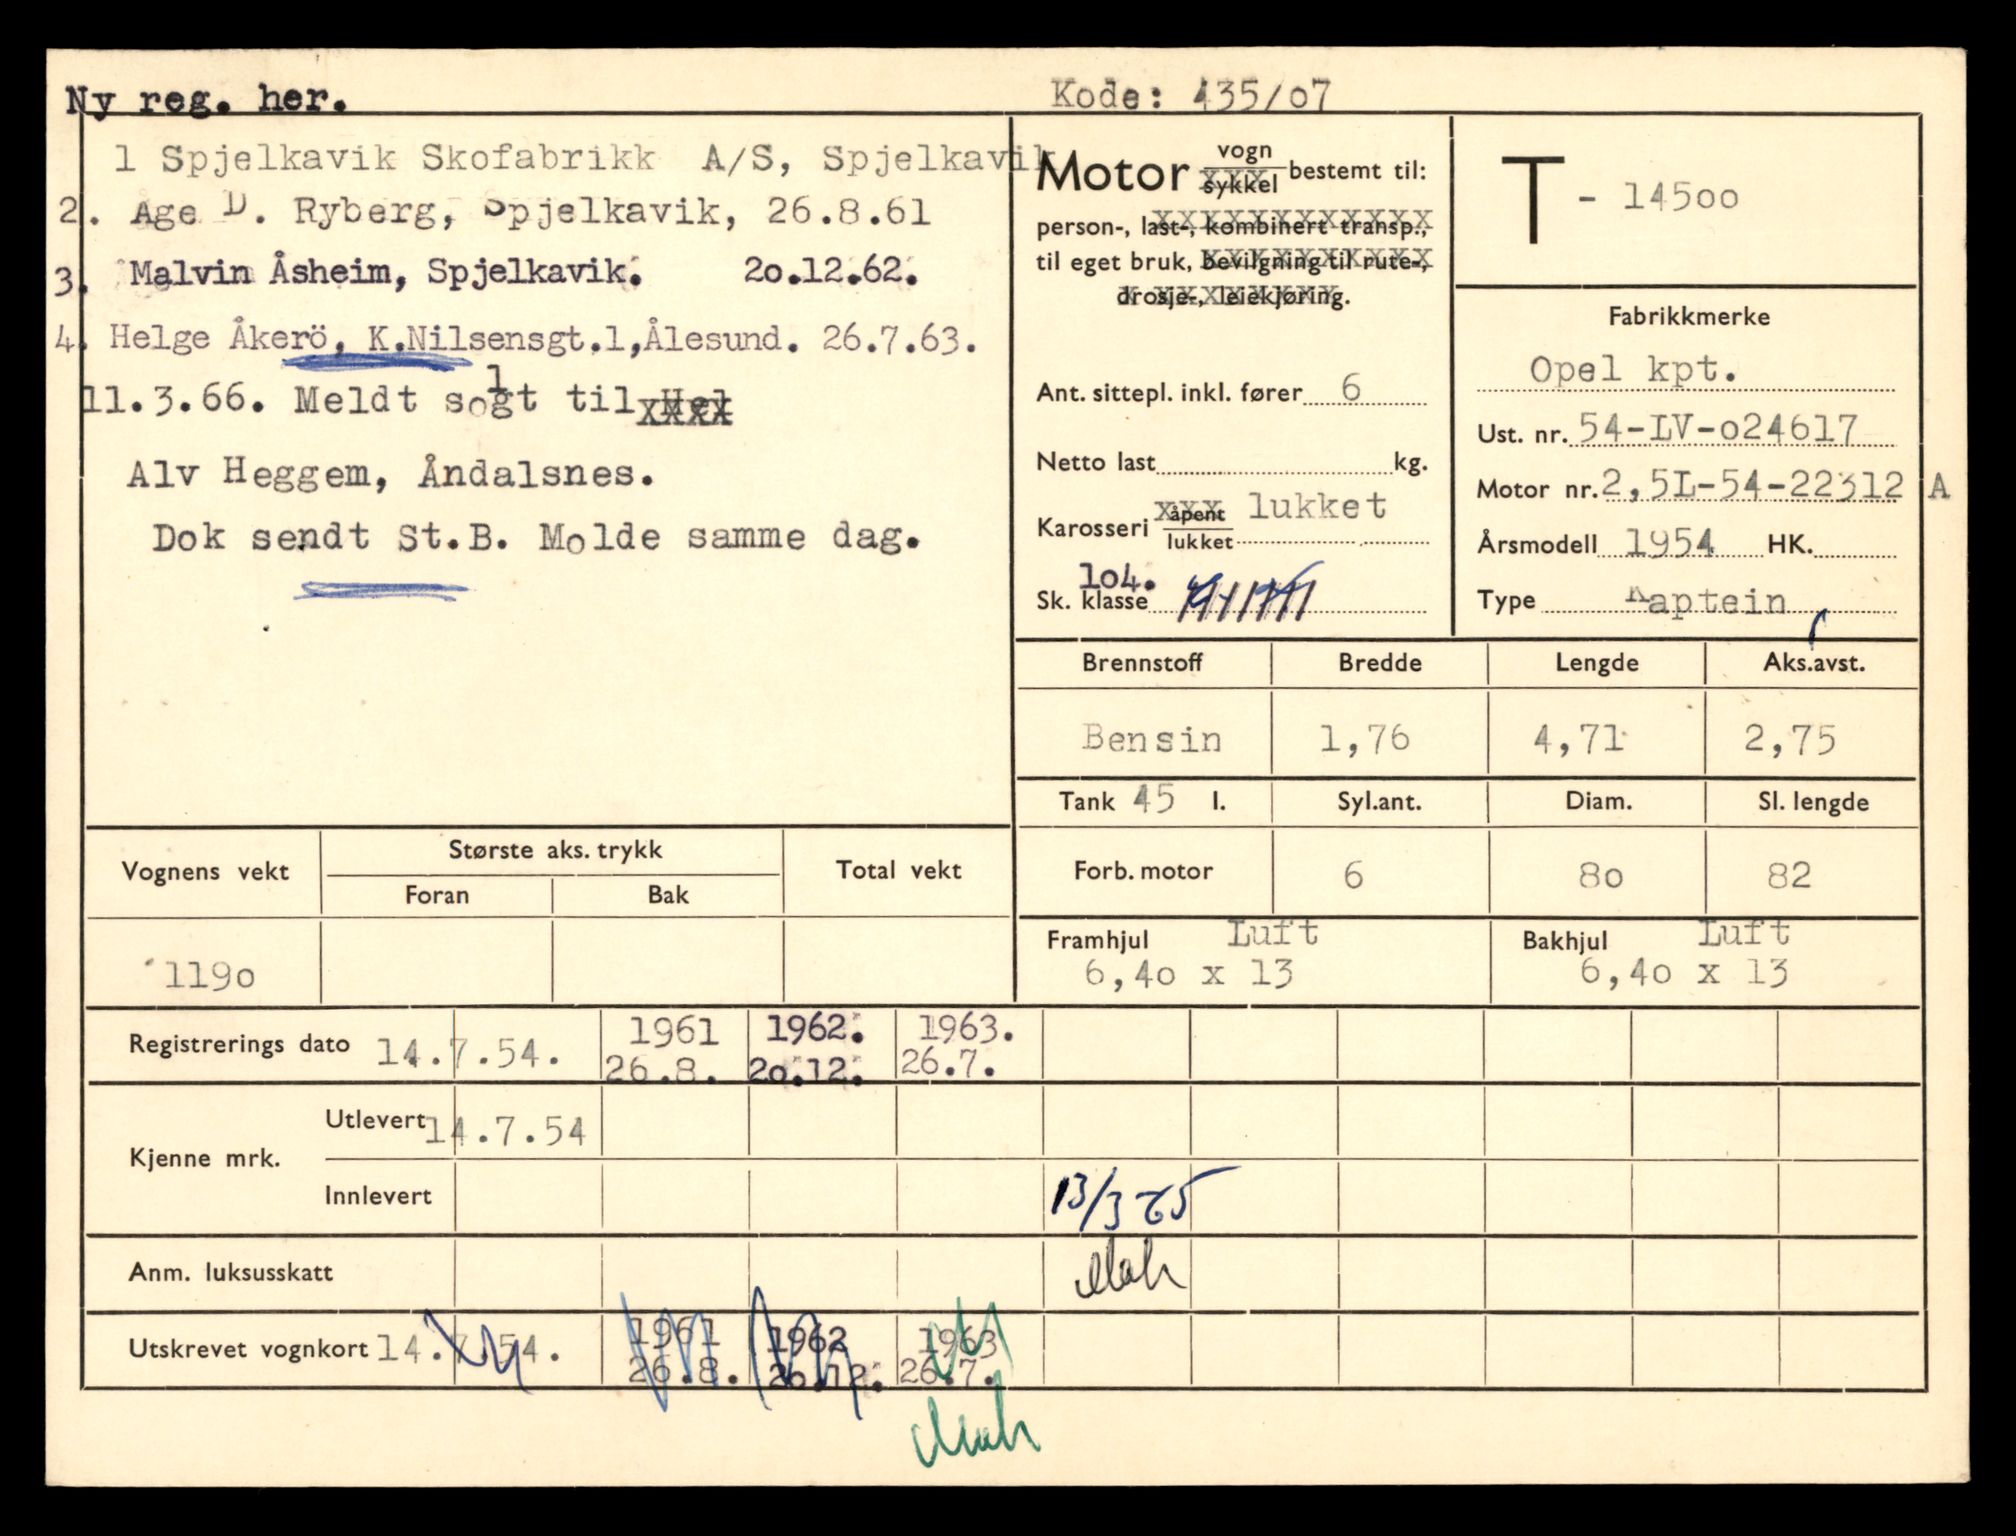 Ny reg. her.
Kode: 435/o7
1 Spjelkavik Skofabrikk A/S, Spjelkavik
2. Age D. Ryberg, Spjelkavik, 26.8.61
3. Malvin Åsheim, Spjelkavik. 2o.12.62.
4. Helge Åkerö, K.Nilsensgt.1,Ålesund. 26.7.63.
11.3.66. Meldt solgt til Hel
Alv Heggem, Åndalsnes.
Dok sendt St.B. Molde samme dag.
Motor vogn sykkel bestemt til:
person-, last-, kombinert transp.,
til eget bruk, bevilgning til rute-,
drosje-, leiekjøring.
Ant. sittepl. inkl. fører 6
Netto last kg.
Karosseri åpent lukket lukket
Sk. klasse 1o4.
T - 145oo
Fabrikkmerke
Opel kpt.
Ust. nr. 54-LV-o24617
Motor nr. 2,5L-54-22312 A
Årsmodell 1954 HK.
Type Kaptein
Brennstoff Bredde Lengde Aks.avst.
Bensin 1,76 4,71 2,75
Tank 45 l. Syl.ant. Diam. Sl. lengde
Forb. motor 6 8o 82
Framhjul Luft Bakhjul Luft
6,4o x 13 6,4o x 13
Vognens vekt Største aks. trykk Total vekt
Foran Bak
119o
Registrerings dato 14.7.54. 1961 1962. 1963.
26.8. 2o.12. 26.7.
Kjenne mrk. Utlevert 14.7.54
Innlevert 13/3 65
Anm. luksusskatt
Utskrevet vognkort 14.7.54. 1961 1962 1963
26.8. 2o.12. 26.7.